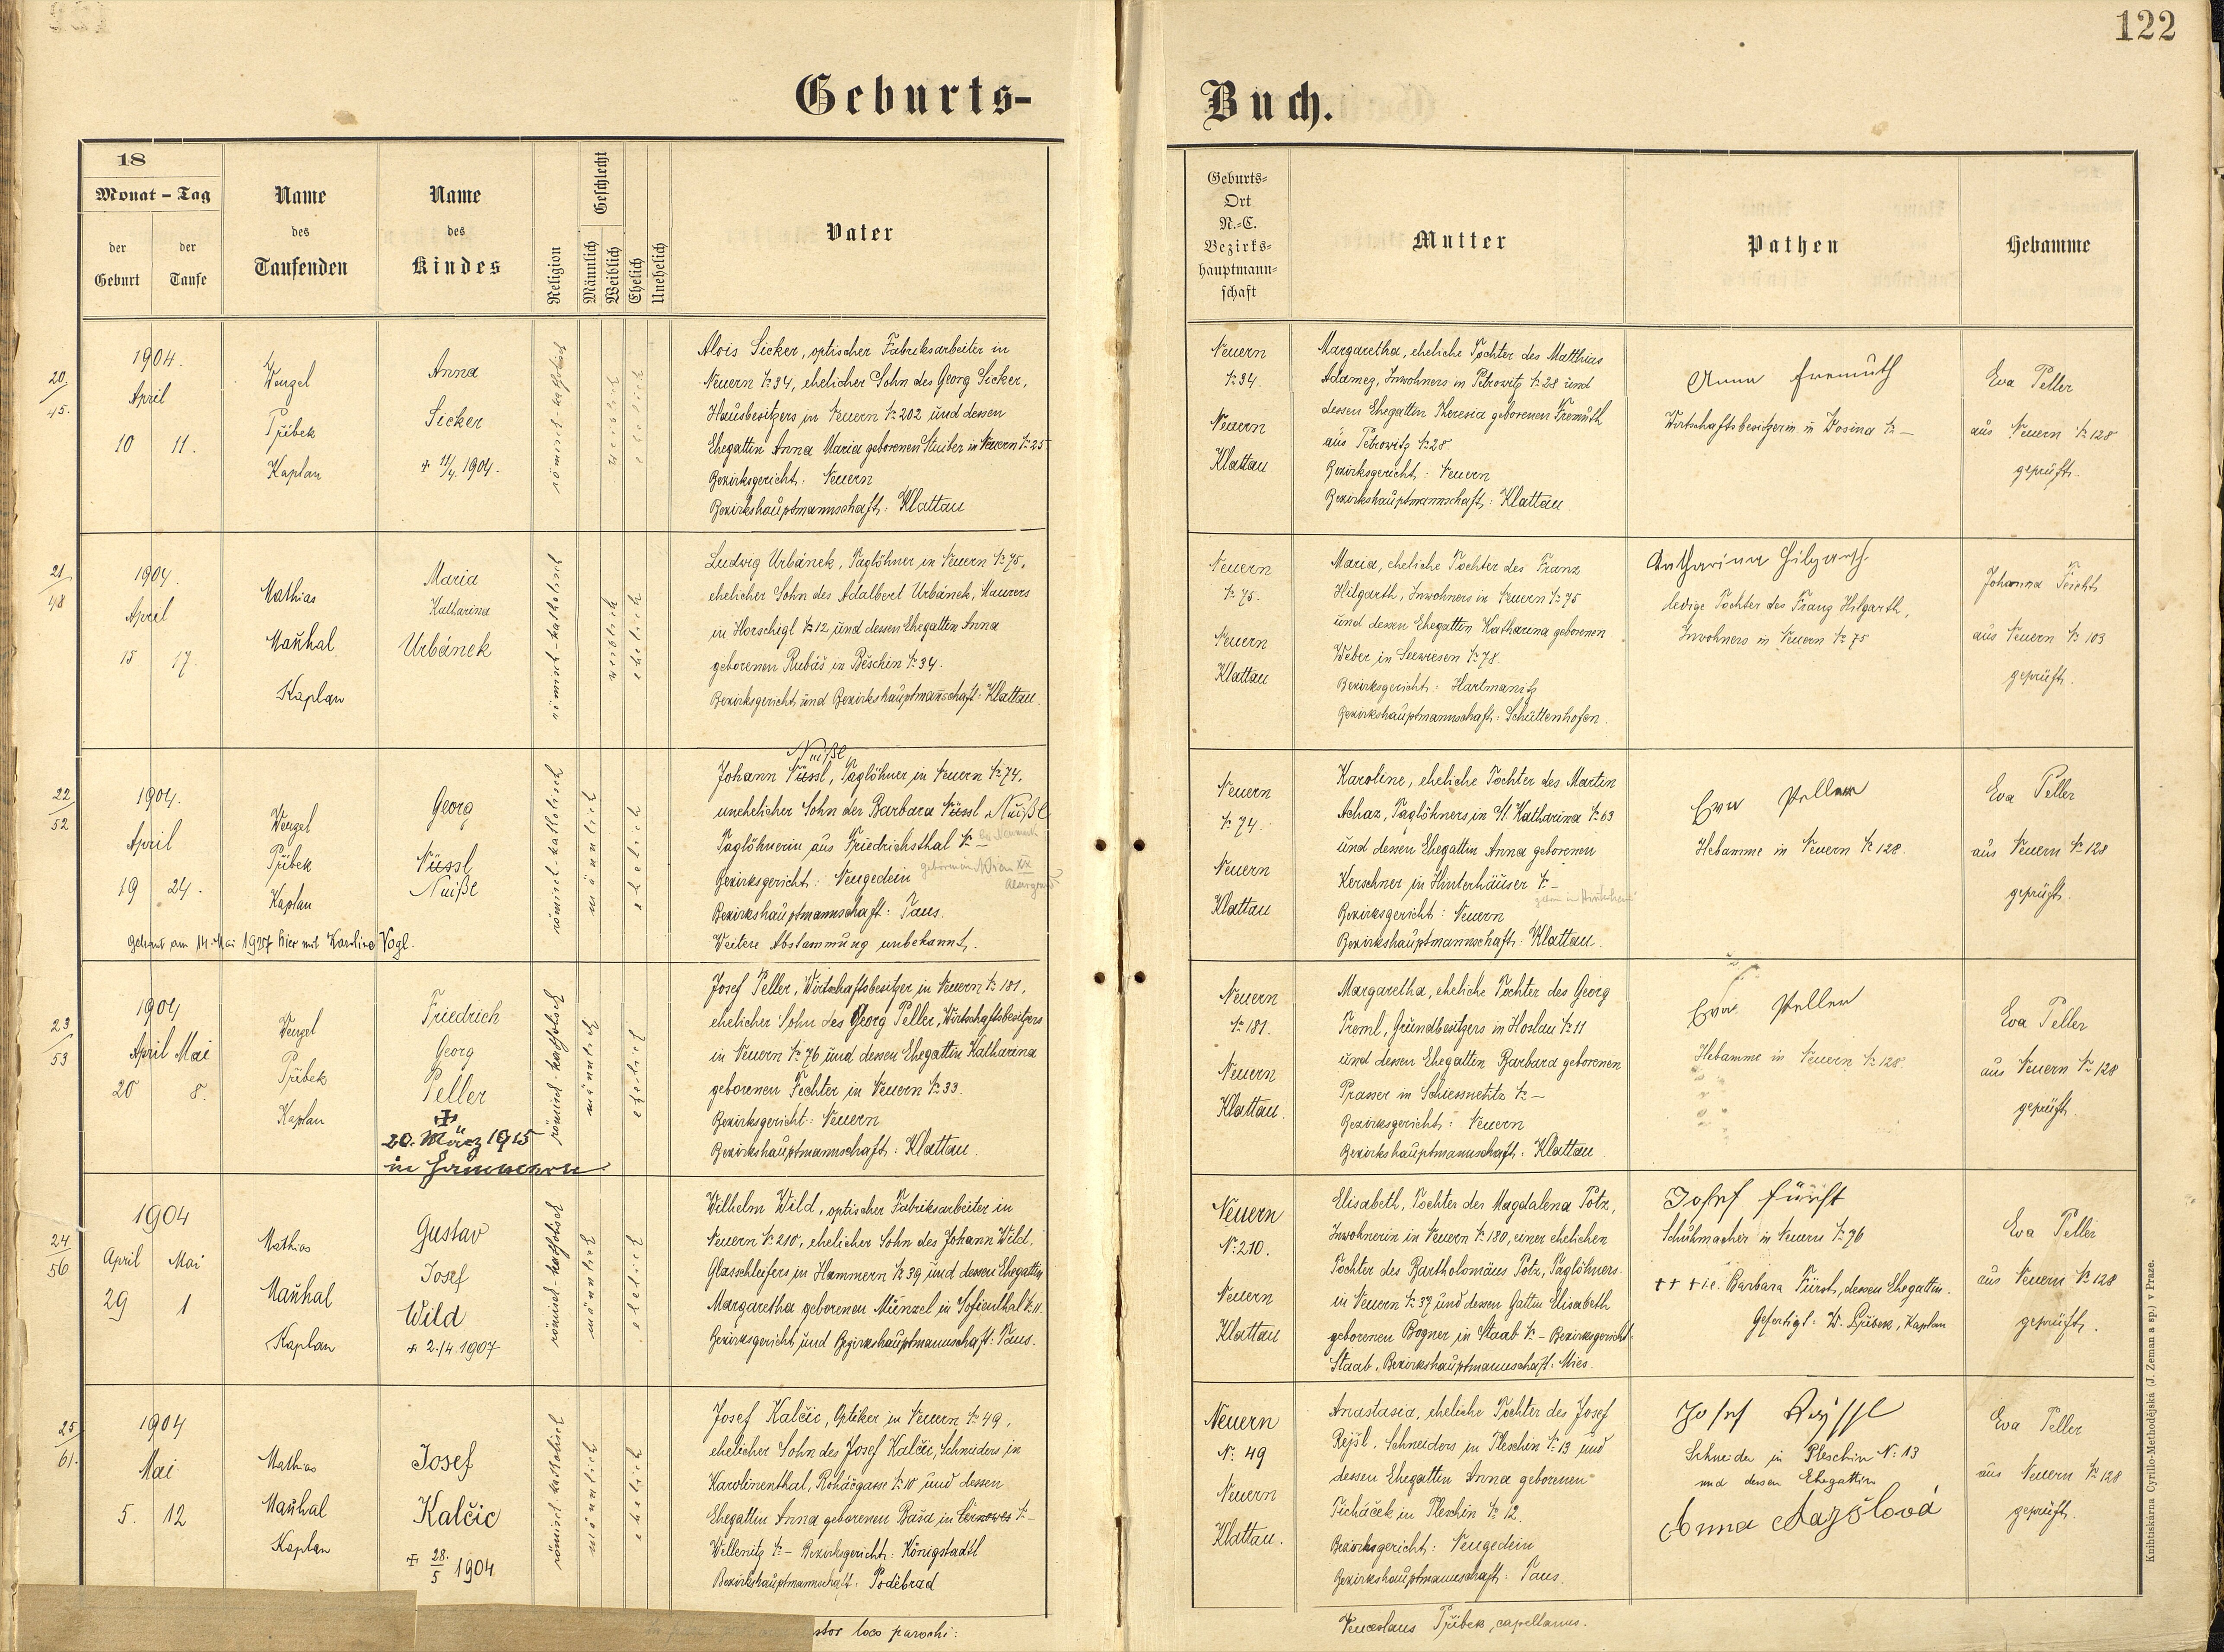 122
Geburts-
Buch.
18
Monat - Tag
der Geburt
der Taufe
Name des Taufenden
Name des Kindes
Religion
Geschlecht
Männlich
Weiblich
Ehelich
Unehelich
Vater
Geburts-
Ort
N.-C.
Bezirks-
hauptmann-
schaft
Mutter
Pathen
Hebamme
20/45.
1904.
April
10 11.
Wenzel
Přibek
Kaplan
Anna
Sicker
+ 11/4. 1904.
römisch-katholisch
weiblich
ehelich
Alois Sicker, optischer Fabriksarbeiter in
Neuern № 34, ehelicher Sohn des Georg Sicker,
Hausbesitzers in Neuern № 202 und dessen
Ehegattin Anna Maria geborenen Stuiber in Neuern № 25
Bezirksgericht: Neuern
Bezirkshauptmannschaft: Klattau
Neuern
№ 34.
Neuern
Klattau
Margaretha, eheliche Tochter des Matthias
Adamez, Inwohners in Petrowitz № 28 und
dessen Ehegattin Theresia geborenen Fremuth
aus Petrowitz № 28.
Bezirksgericht: Neuern
Bezirkshauptmannschaft: Klattau.
Anna Fremuth
Wirtschaftsbesitzerin in № –
Eva Peller
aus Neuern № 128
geprüft.
21/48
1904.
April
15 17.
Mathias
Maňhal
Kaplan
Maria
Katharina
Urbánek
römisch-katholisch
weiblich
ehelich
Ludwig Urbánek, Taglöhner in Neuern № 75,
ehelicher Sohn des Adalbert Urbánek, Maurers
in Horschigl № 12 und dessen Ehegattin Anna
geborenen Rubáš in Běschin № 34.
Bezirksgericht und Bezirkshauptmannschaft: Klattau.
Neuern
№ 75.
Neuern
Klattau
Maria, eheliche Tochter des Franz
Hilgarth, Inwohners in Neuern № 75
und dessen Ehegattin Katharina geborenen
Weber in Seewiesen № 78.
Bezirksgericht: Hartmanitz
Bezirkshauptmannschaft: Schüttenhofen.
Katharina Hilgarth
ledige Tochter des Franz Hilgarth,
Inwohners in Neuern № 75
Johanna
aus Neuern № 103
geprüft.
22/52
1904.
April
19 24.
Wenzel
Přibek
Kaplan
Georg
Nüssl
Nuißl
Getraut am 14. Mai 1927 hier mit Karoline Vogl.
römisch-katholisch
männlich
ehelich
Nuißl
Johann Nüssl, Taglöhner in Neuern № 74,
unehelicher Sohn der Barbara Nüssl Nuißl
Taglöhnerin aus Friedrichsthal № –
Bezirksgericht: Neugedein geboren in Wien
Bezirkshauptmannschaft: Taus.
Weitere Abstammung unbekannt.
Neuern
№ 74.
Neuern
Klattau
Karoline, eheliche Tochter des Martin
Achaz, Taglöhners in St. Katharina № 63
und dessen Ehegattin Anna geborenen
Kerschner in Hinterhäuser № –
Bezirksgericht: Neuern
Bezirkshauptmannschaft: Klattau.
Eva Peller
Hebamme in Neuern № 128.
Eva Peller
aus Neuern № 128
geprüft.
23/53
1904
April Mai
20 8.
Wenzel
Přibek
Kaplan
Friedrich
Georg
Peller
+
20. März 1915
in Hammern
römisch-katholisch
männlich
ehelich
Josef Peller, Wirtschaftsbesitzer in Neuern № 181,
ehelicher Sohn des Georg Peller, Wirtschaftsbesitzers
in Neuern № 76 und dessen Ehegattin Katharina
geborenen Fechter in Neuern № 33.
Bezirksgericht: Neuern
Bezirkshauptmannschaft: Klattau.
Neuern
№ 181.
Neuern
Klattau.
Margaretha, eheliche Tochter des Georg
Treml, Grundbesitzers in Hoslau № 11
und dessen Ehegattin Barbara geborenen
Prasser in Schiessnetitz № –
Bezirksgericht: Neuern
Bezirkshauptmannschaft: Klattau
Eva Peller
Hebamme in Neuern № 128.
Eva Peller
aus Neuern № 128
geprüft.
24/56
1904
April Mai
29 1
Mathias
Maňhal
Kaplan
Gustav
Josef
Wild
+ 2./4.1907
römisch-katholisch
männlich
ehelich
Wilhelm Wild, optischer Fabriksarbeiter in
Neuern № 210, ehelicher Sohn des Johann Wild,
Glasschleifers in Hammern № 39 und dessen Ehegattin
Margaretha geborenen Münzel in Sofienthal № 11.
Bezirksgericht und Bezirkshauptmannschaft: Taus.
Neuern
N: 210.
Neuern
Klattau
Elisabeth, Tochter der Magdalena Potz,
Inwohnerin in Neuern № 180, einer ehelichen
Tochter des Bartholomäus Potz, Taglöhners
in Neuern № 37 und dessen Gattin Elisabeth
geborenen Bogner in Staab № – Bezirksgericht:
Staab, Bezirkshauptmannschaft: Mies.
Josef Fürst
Schuhmacher in Neuern № 76
+++ i.e. Barbara Fürst, dessen Ehegattin.
Gefertigt: W. Přibek, Kaplan
Eva Peller
aus Neuern № 128
geprüft.
25/61.
1904
Mai
5. 12
Mathias
Maňhal
Kaplan
Josef
Kalčic
+ 28./5 1904
römisch-katholisch
männlich
ehelich
Josef Kalčic, Optiker in Neuern № 49,
ehelicher Sohn des Josef Kalčic, Schneiders in
Karolinenthal, Roháčgasse № 10 und dessen
Ehegattin Anna geborenen Baša in № –
Wellenitz № – Bezirksgericht: Königstadtl
Bezirkshauptmannschaft: Poděbrad
Neuern
N: 49
Neuern
Klattau.
Anastasia, eheliche Tochter des Josef
Rejšl, Schneiders in Pleschin № 13 und
dessen Ehegattin Anna geborenen
Ticháček in Pleschin № 12.
Bezirksgericht: Neugedein
Bezirkshauptmannschaft: Taus.
Josef
Schneider in Pleschin N: 13
und dessen Ehegattin
Anna
Eva Peller
aus Neuern № 128
geprüft.
stor loco parochi:
Venceslaus Přibek, capellanus.
Knihtiskárna Cyrillo-Methodějská (J. Zeman a sp.) v Praze.